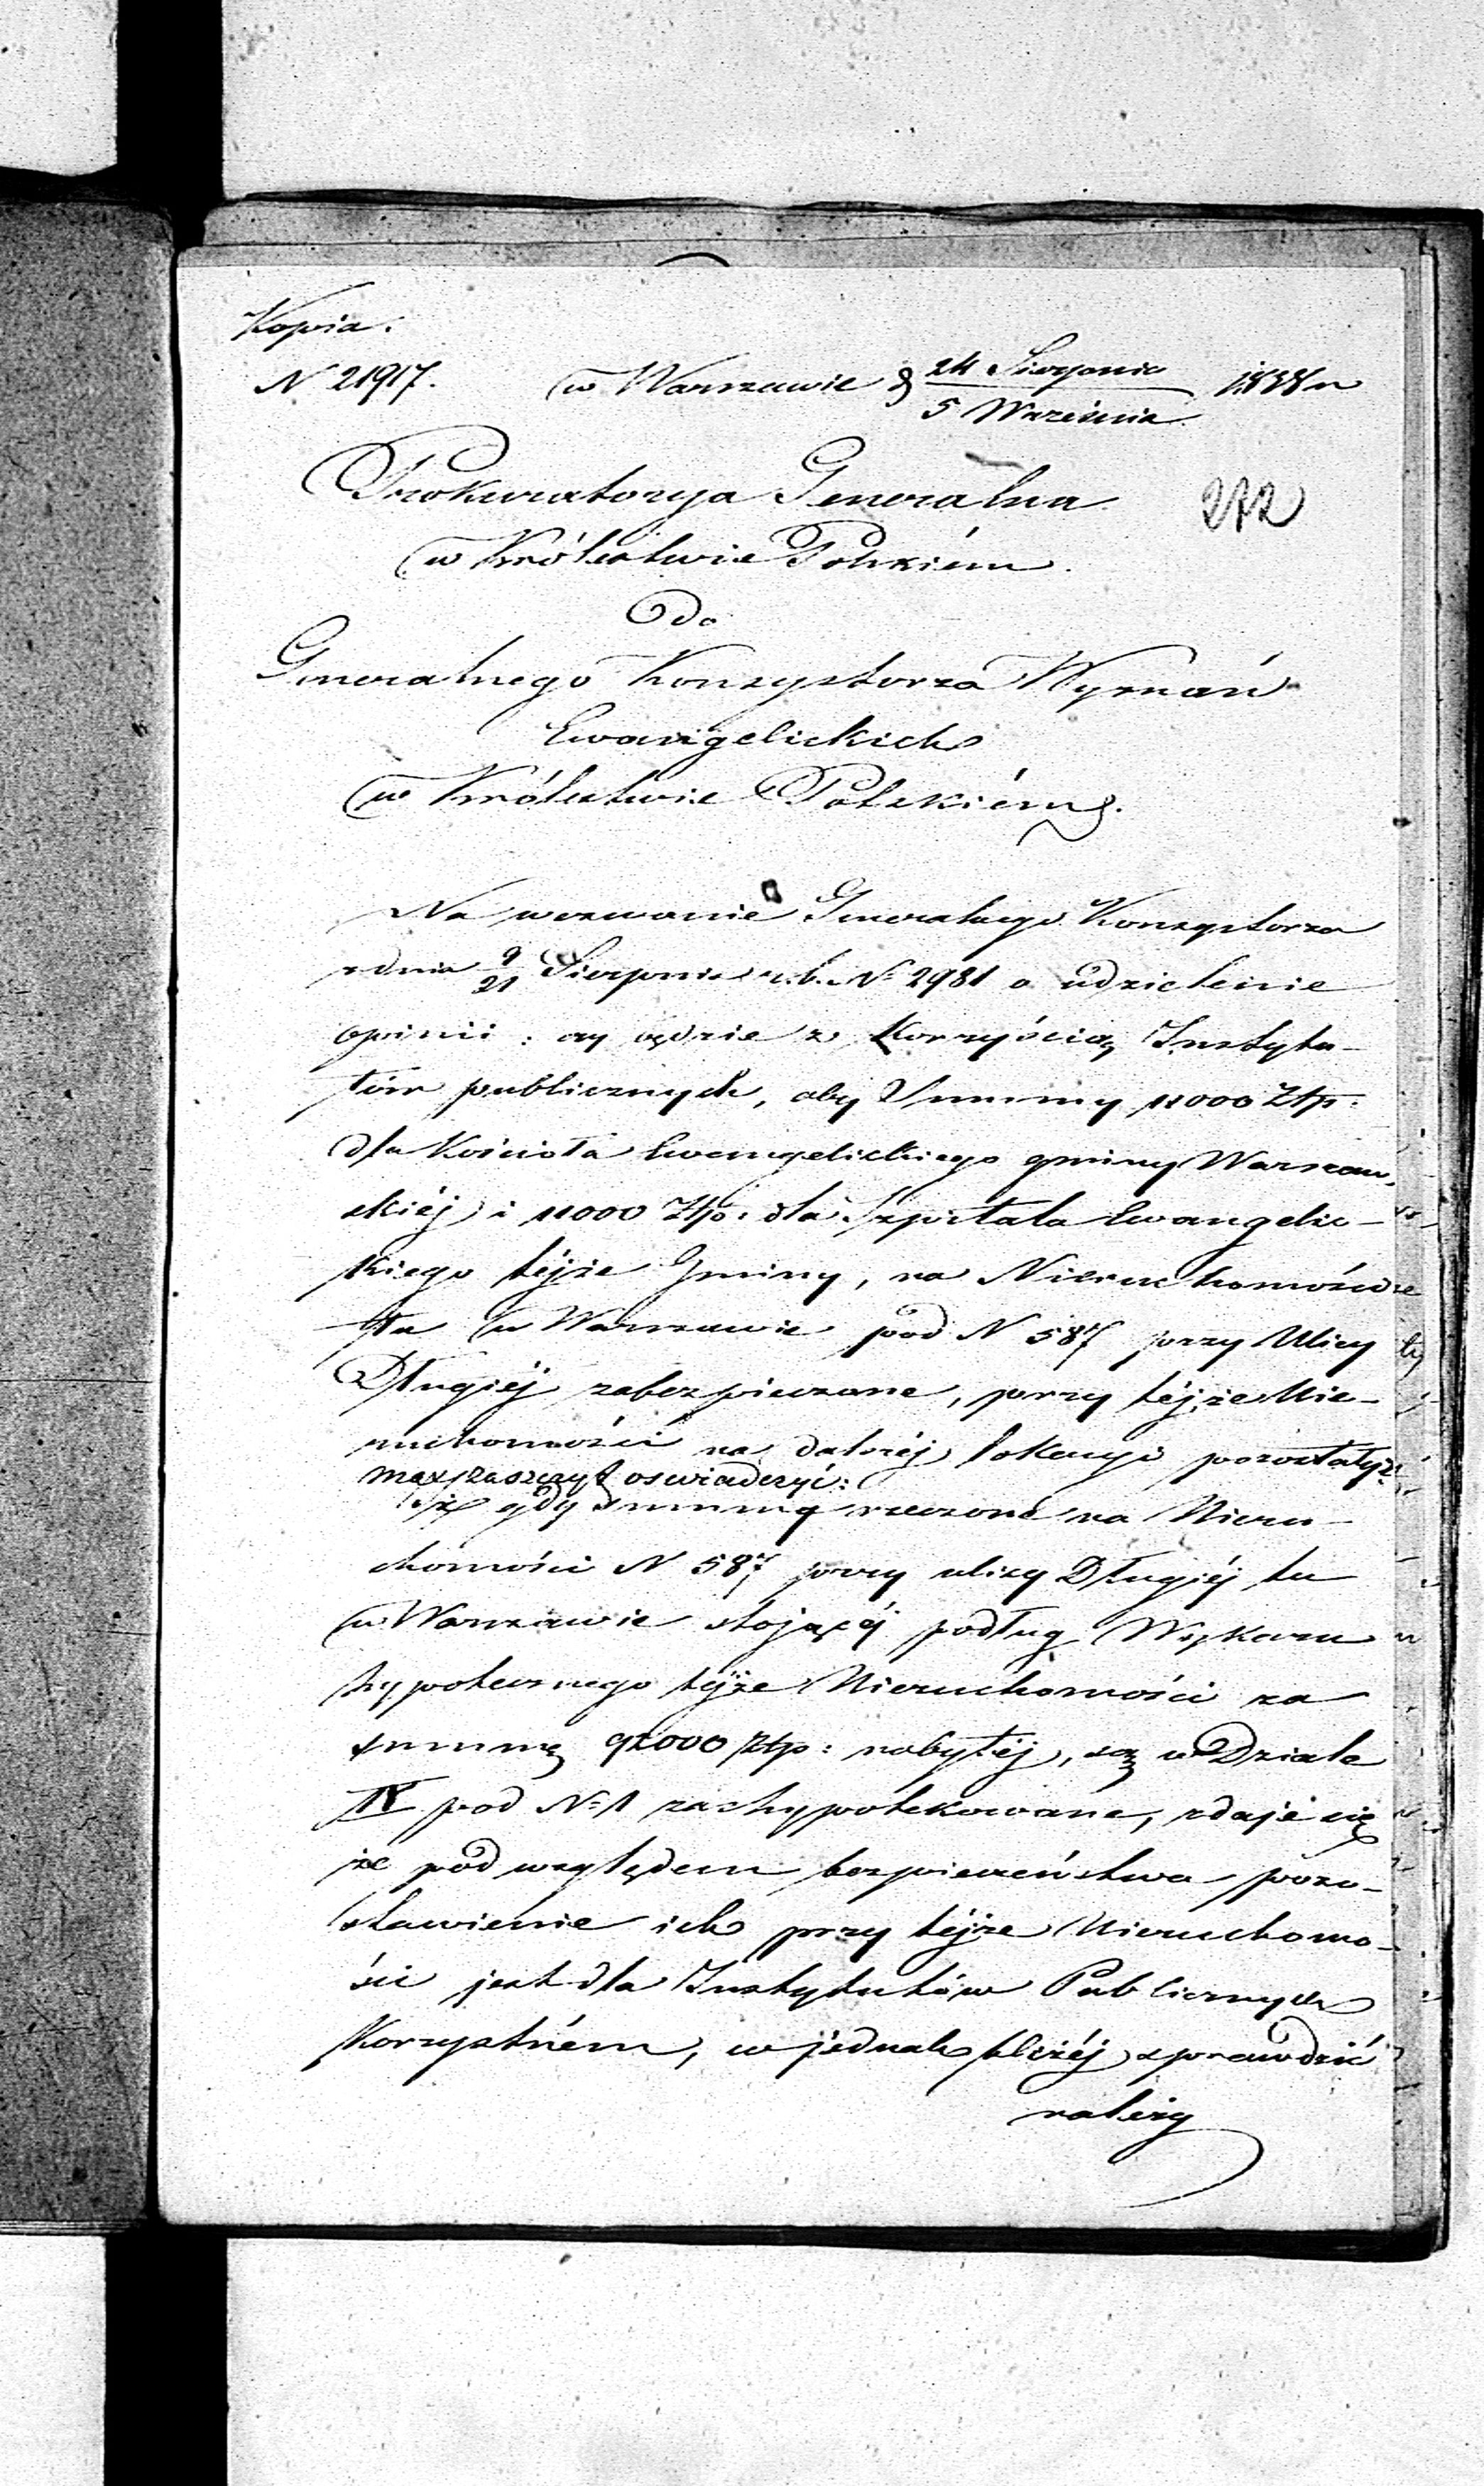 Kopia.
N 21917. w Warszawie d 24 Sierpnia / 5 Września 1838 r
Prokuratorya Generalna
272
w Królestwie Polskiém.
Do
Generalnego Konsystorza Wyznań
Ewangelickich
w Królestwie Polskiém.
Na wezwanie Generalnego Konsystorza
z dnia 9/21 Sierpnia r.b. N: 2981 o udzielenie
opinii: czy będzie z korzyścią Instytu-
tów publicznych, aby Summy 11000 Złp:
dla Kościoła Ewangelickiego gminy Warszaw-
skiéj i 11000 Złp: dla Szpitala Ewangelic-
kiego téjże Gminy, na Nieruchomości
tu w Warszawie pod N 587 przy Ulicy
Długiéj zabezpieczone, przy téjże Nie-
ruchomości na dalszéj lokacyi pozostały:
ma zaszczyt oswiadczyć:
iż gdy summy rzeczone na Nieru-
chomości N 587 przy ulicy Długiéj tu
w Warszawie stojącéj podług Wykazu
hypotecznego téjże Nieruchomości za
summę 92000 Złp: nabytéj, są w Dziale
IV pod N: 1 zahypotekowane, zdaje się
że pod względem bezpieczeństwa pozo-
stawienie ich przy téjże Nieruchomo-
ści jest dla Instytutów Publicznych
Korzystném, co jednak bliżéj sprawdzić
należy